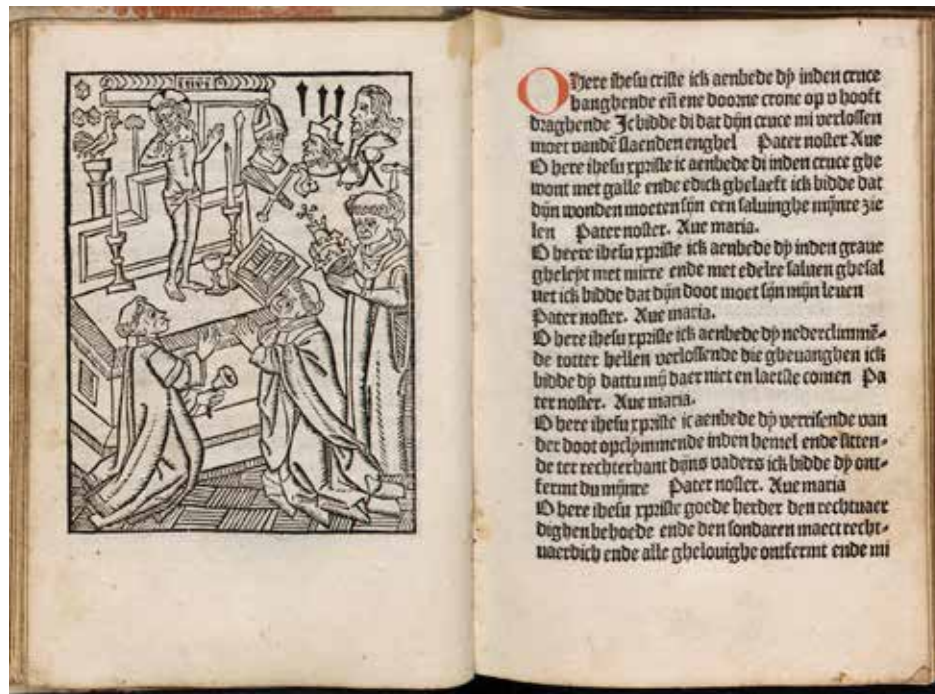 inri
O here ihesu criste ick aenbede dy inden cruce
hanghende eñ ene doorne crone op v hooft
draghende Ic bidde di dat dijn cruce mi verlossen
moet vandē slaenden enghel Pater noster Aue
O here ihesu xpriste ic aenbede di inden cruce ghe
wont met galle ende edick ghelaeft ick bidde dat
dijn wonden moeten sijn een saluinghe mijnre zie
len Pater noster. Aue maria.
O heere ihesu xpriste ick aenbede dy inden graue
gheleyt met mirre ende met edelre saluen ghesal
uet ick bidde dat dijn doot moet sijn mijn leuen
Pater noster. Aue maria.
O here ihesu xpriste ick aenbede dy nederclimmē-
de totter hellen verlossende die gheuanghen ick
bidde dy dattu mij daer niet en laetste comen Pa
ter noster. Aue maria.
O here ihesu xpriste ic aenbede dy verrisende van
der doot opclymmende inden hemel ende sitten-
de ter rechterhant dijns vaders ick bidde dy ont-
fermt du mijnre Pater noster. Aue maria
O here ihesu xpriste goede herder den rechtuaer
dighen behoede ende den sondaren maect recht-
uaerdich ende alle ghelouighe ontfermt ende mi